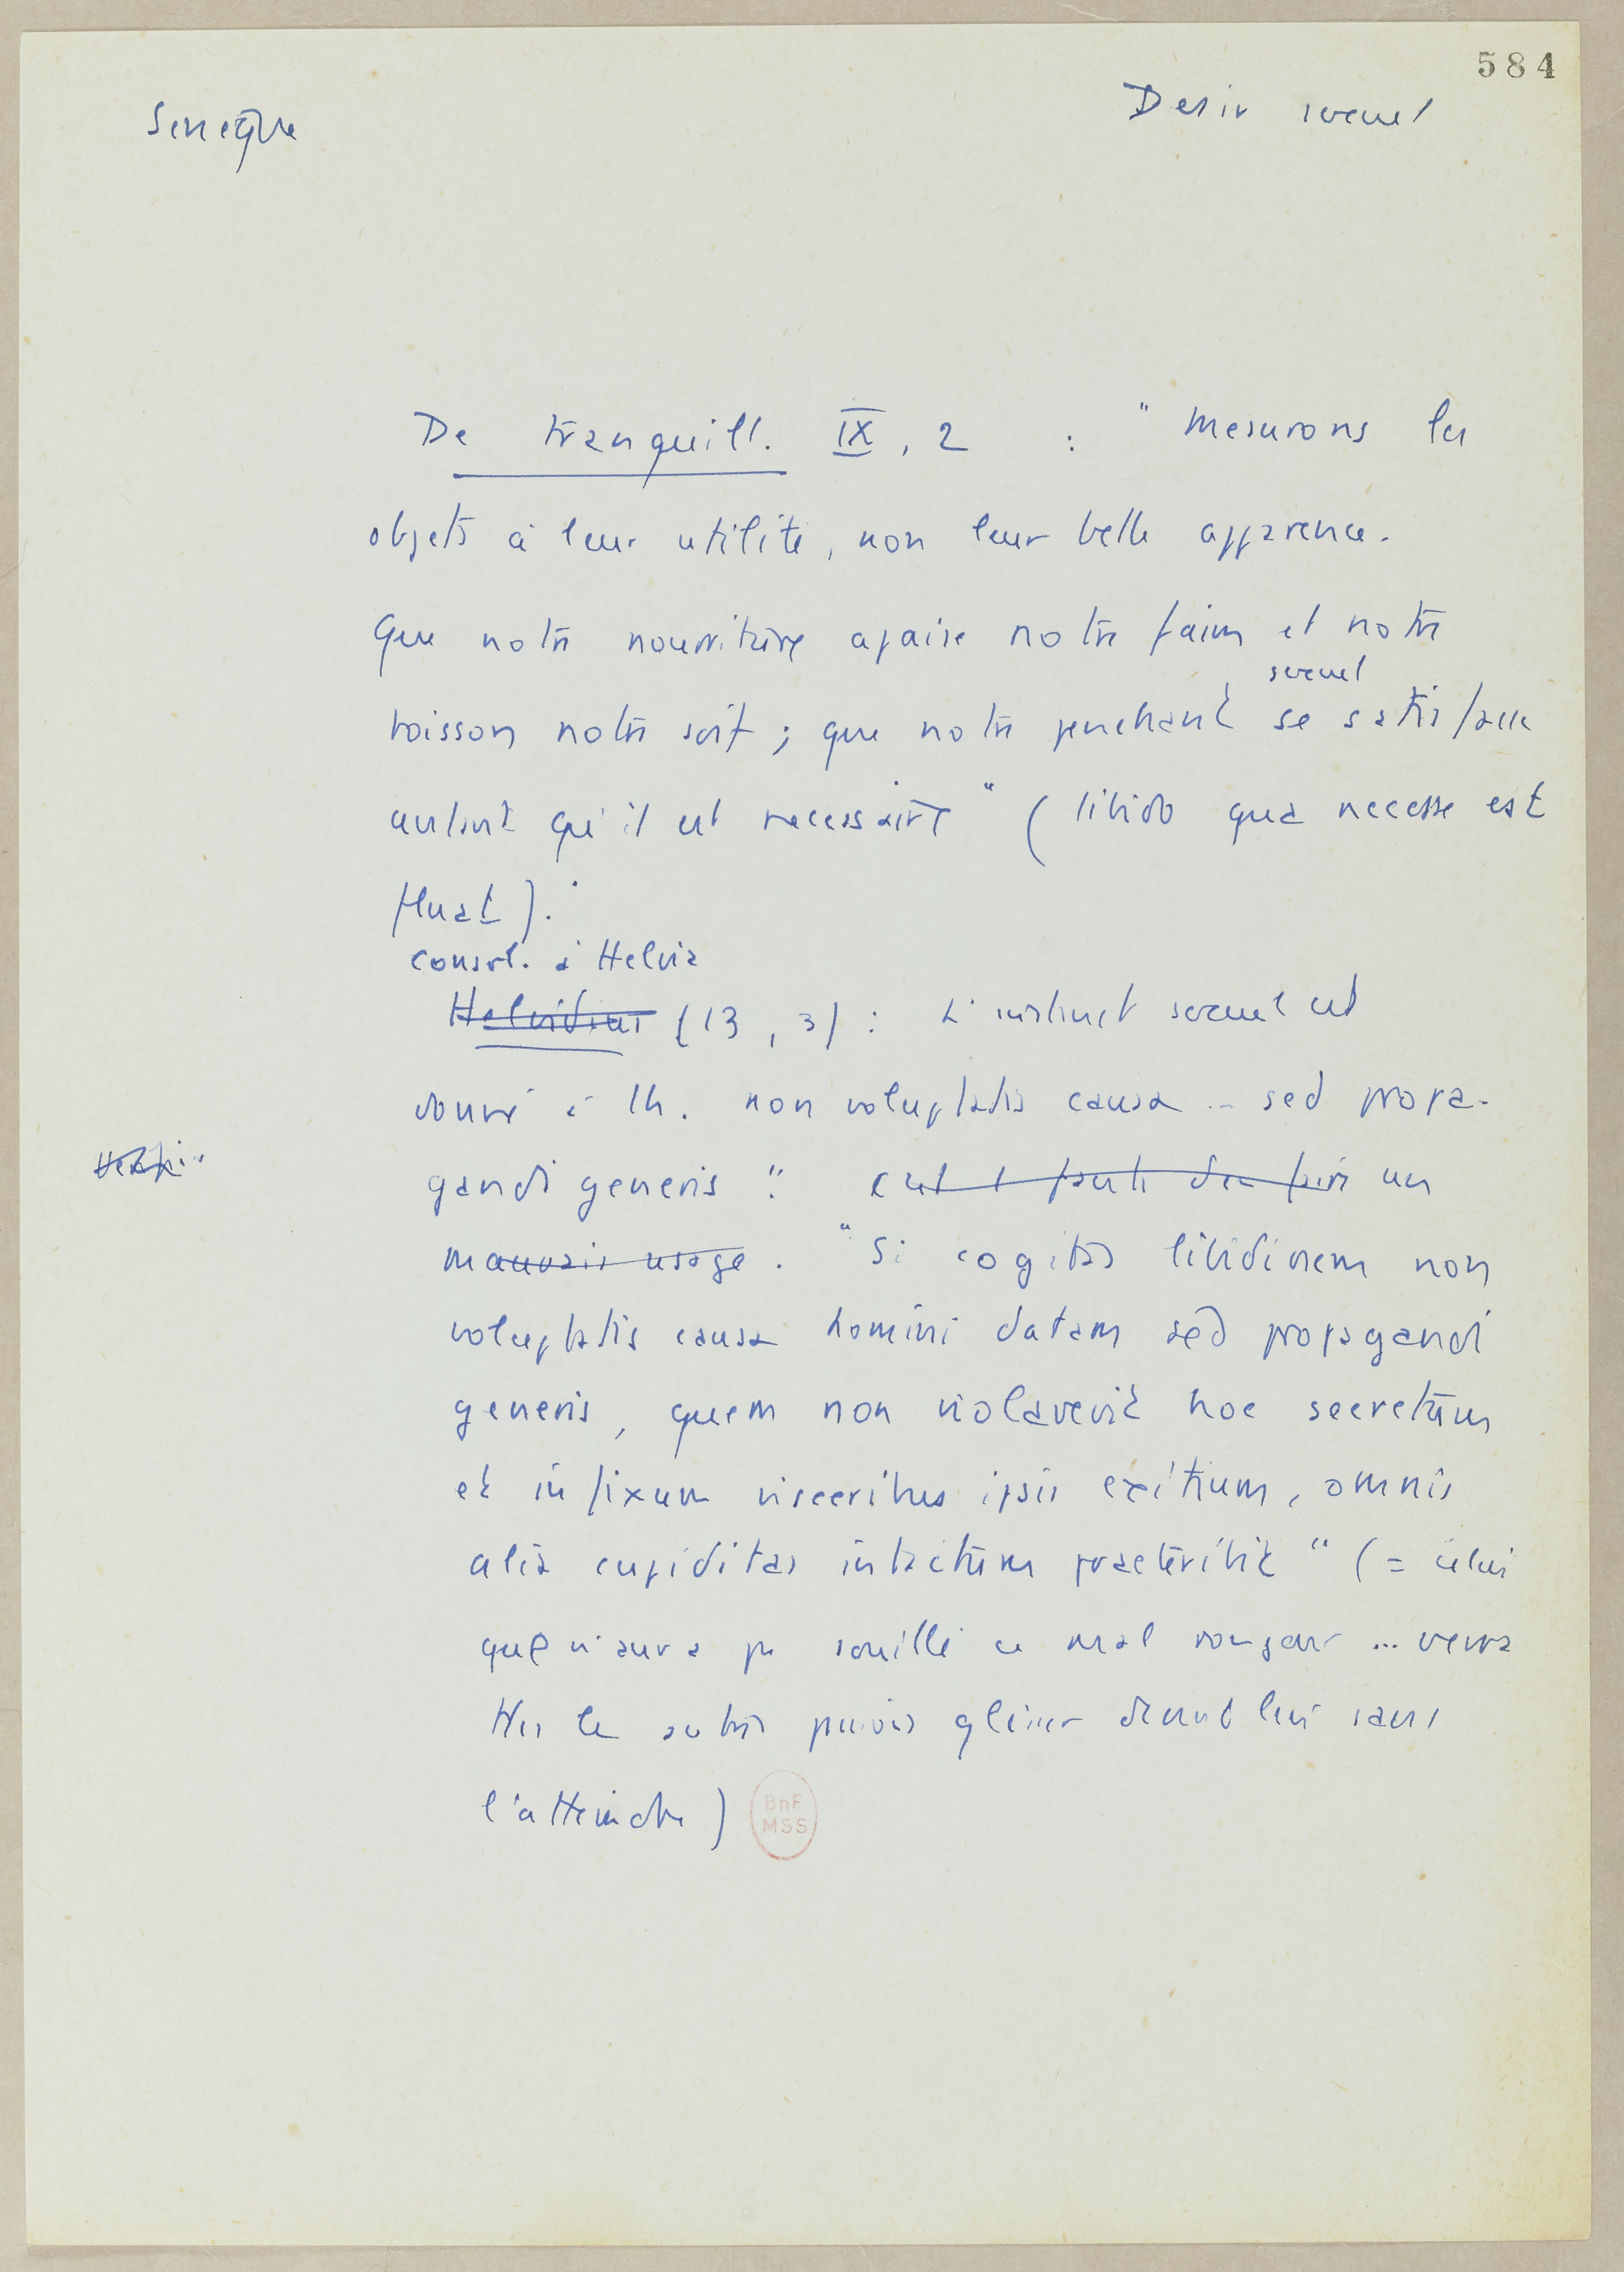 584
Seneque
Desir sexuel
De tranquill. IX, 2 : "Mesurons les
objets à leur utilité, non leur belle apparence.
Que notre nourriture apaise notre faim et notre
boisson notre soif ; que notre penchant sexuel se satisfasse
autant qu'il est necessaire" (libido qua necesse est
fluat).
Consol. à Helvia
Helvidius (13, 3) : L'instinct sexuel est
donné à l'h. non voluptatis causa .. sed propa-
gandi generis".
c'est faute d'en faire un
mauvais usage. "Si cogitas libidinem non
voluptatis causa homini datam sed propagandi
generis, quem non violaverit hoc secretum
et infixum visceribus ipsis exitium, omnis
alia cupiditas intactum praeteribit" (= celui
que n'aura pas souillé ce mal rongeur ... verra
ttes les autres passions glisser devant lui sans
l'atteindre)
BnF
MSS